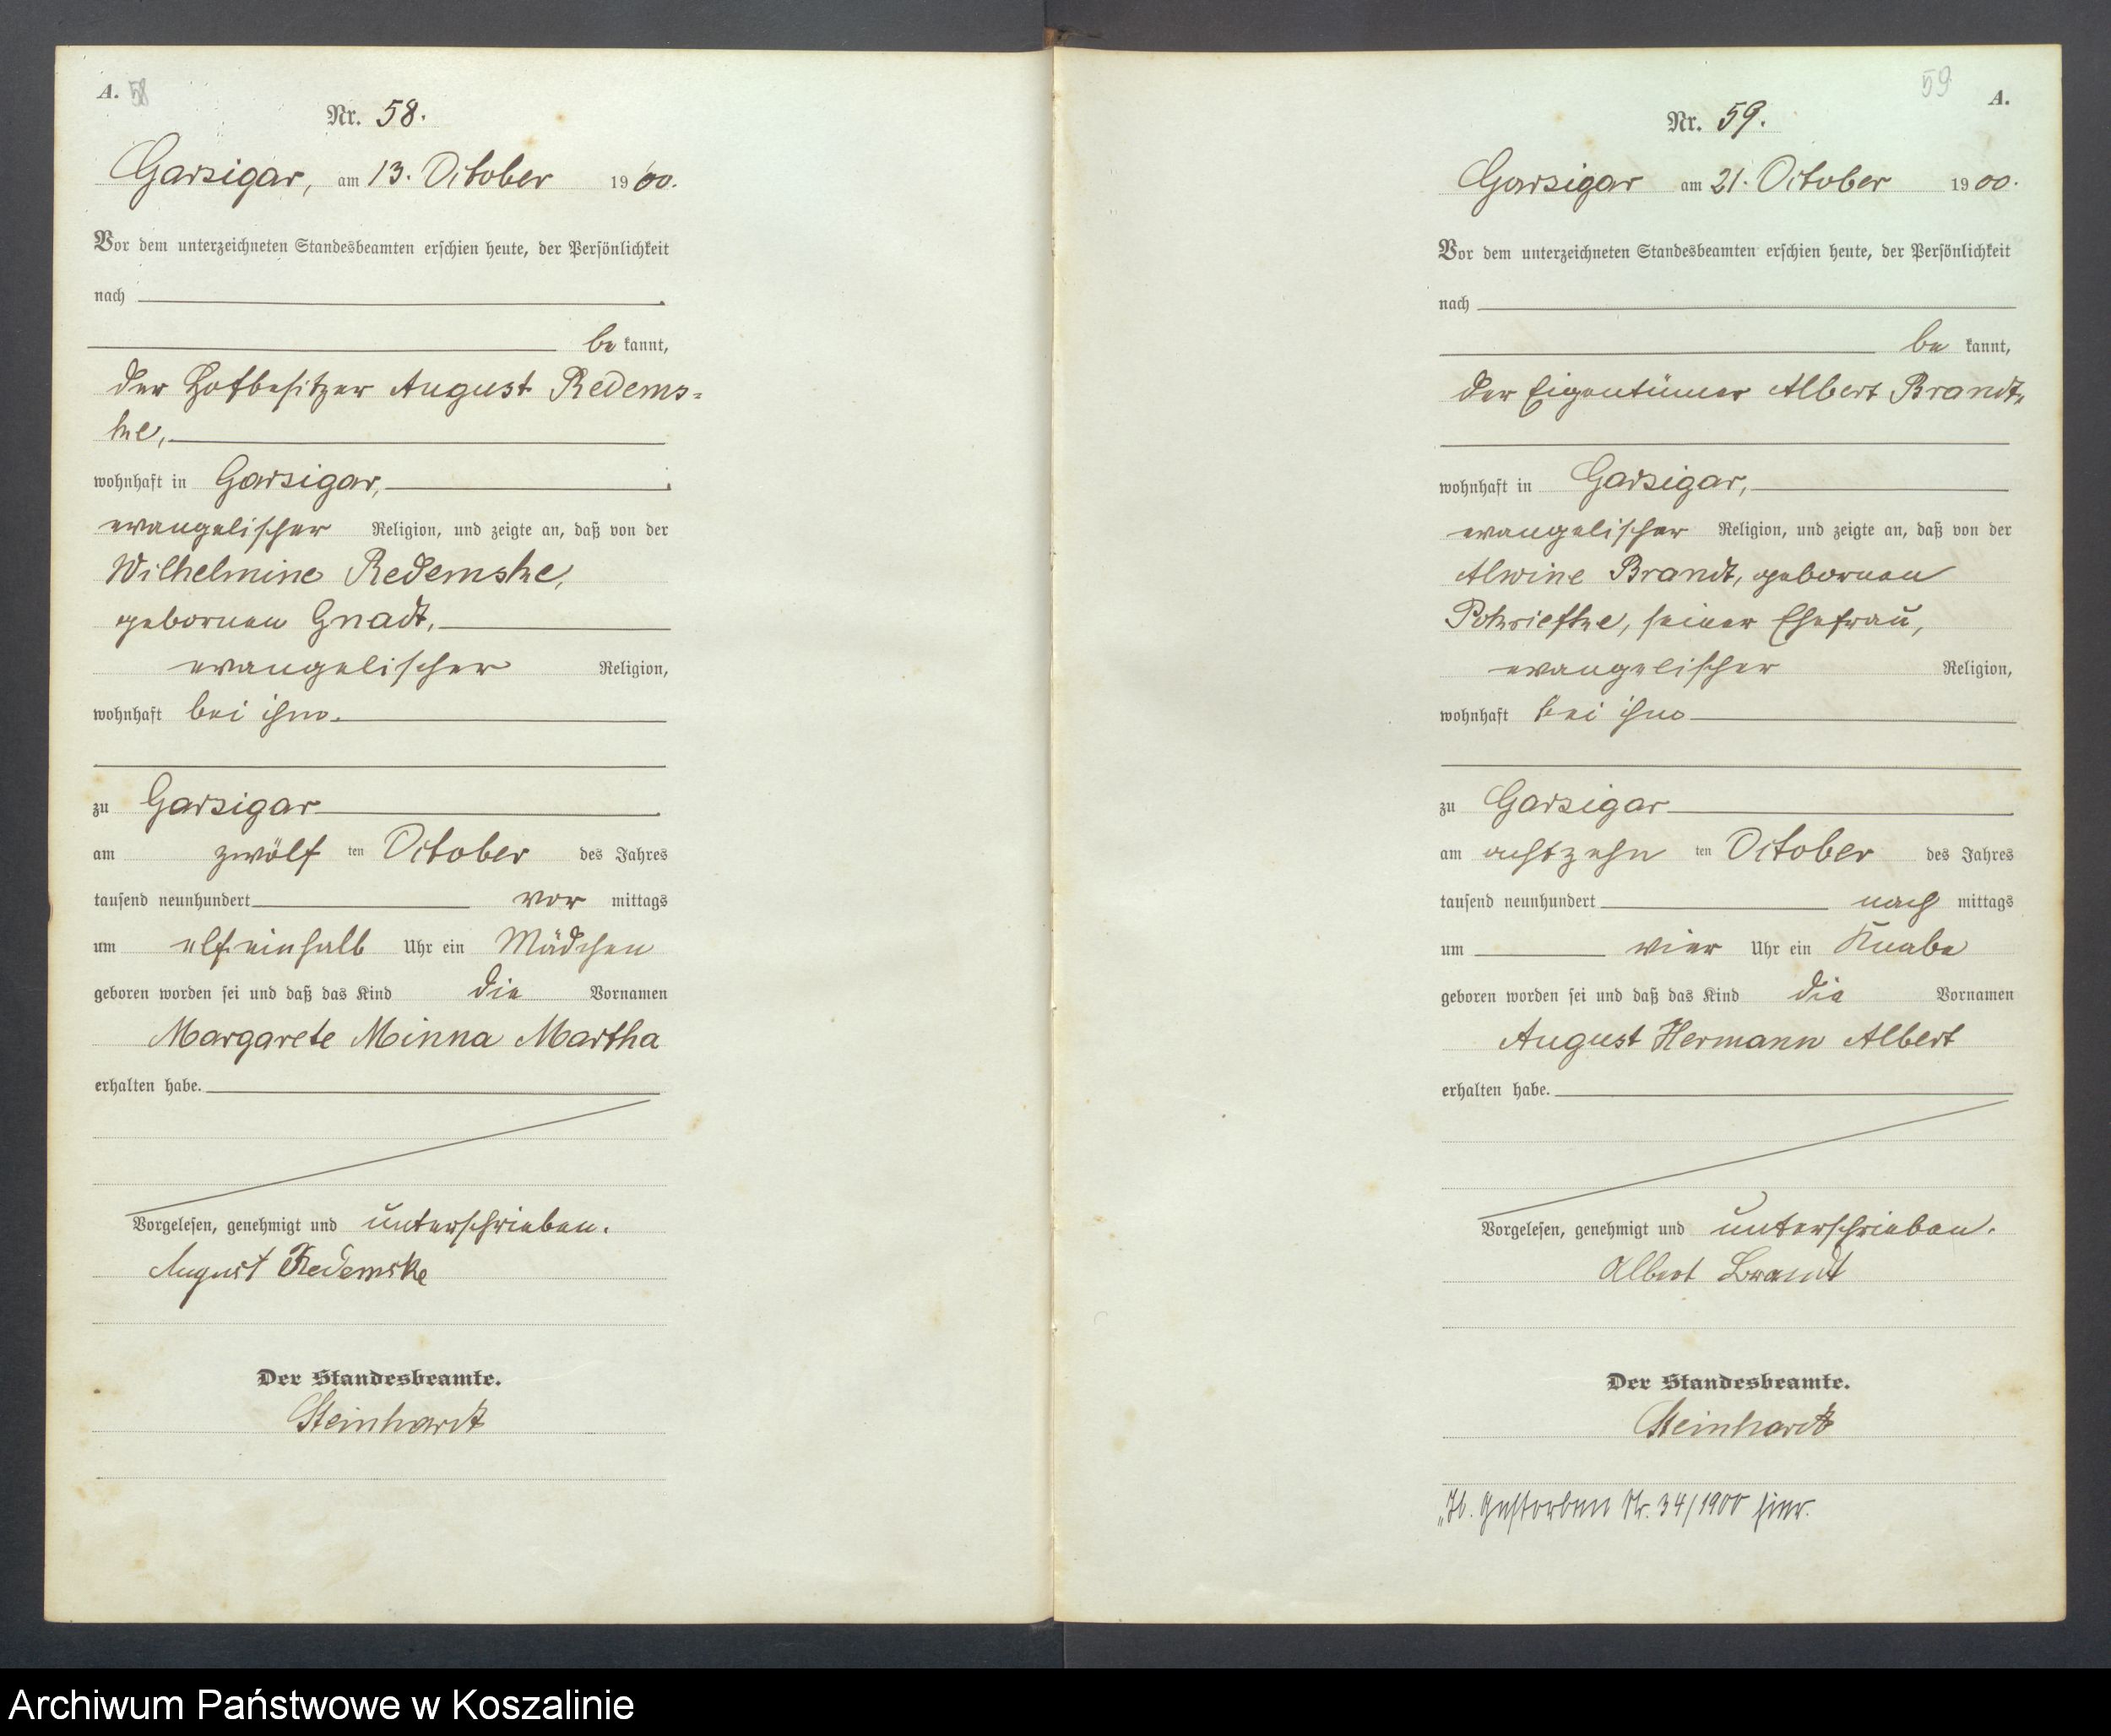 A. 58
Nr. 58.
Garzigar, am 13. October 1900.
Vor dem unterzeichneten Standesbeamten erschien heute, der Persönlichkeit
nach
be kannt,
der Hofbesitzer August Redems=
ke,
wohnhaft in Garzigar,
evangelischer Religion, und zeigte an, daß von der
Wilhelmine Redemske,
gebornen Gnadt,
evangelischer Religion,
wohnhaft bei ihm.
zu Garzigar
am zwölf ten October des Jahres
tausend neunhundert vor mittags
um elfeinhalb Uhr ein Mädchen
geboren worden sei und daß das Kind die Vornamen
Margarete Minna Martha
erhalten habe.
Vorgelesen, genehmigt und unterschrieben.
August Redemske
Der Standesbeamte.
Steinhardt
59 A.
Nr. 59.
Garzigar am 21. October 1900.
Vor dem unterzeichneten Standesbeamten erschien heute, der Persönlichkeit
nach
be kannt,
der Eigentümer Albert Brandt,
wohnhaft in Garzigar,
evangelischer Religion, und zeigte an, daß von der
Alwine Brandt, gebornen
seiner Ehefrau,
evangelischer Religion,
wohnhaft bei ihm
zu Garzigar
am achtzehn ten October des Jahres
tausend neunhundert nach mittags
um vier Uhr ein Knabe
geboren worden sei und daß das Kind die Vornamen
August Hermann Albert
erhalten habe.
Vorgelesen, genehmigt und unterschrieben.
Albert Brandt
Der Standesbeamte.
Steinhardt
Gestorben Nr. 34/1900 hier.
Archiwum Państwowe w Koszalinie